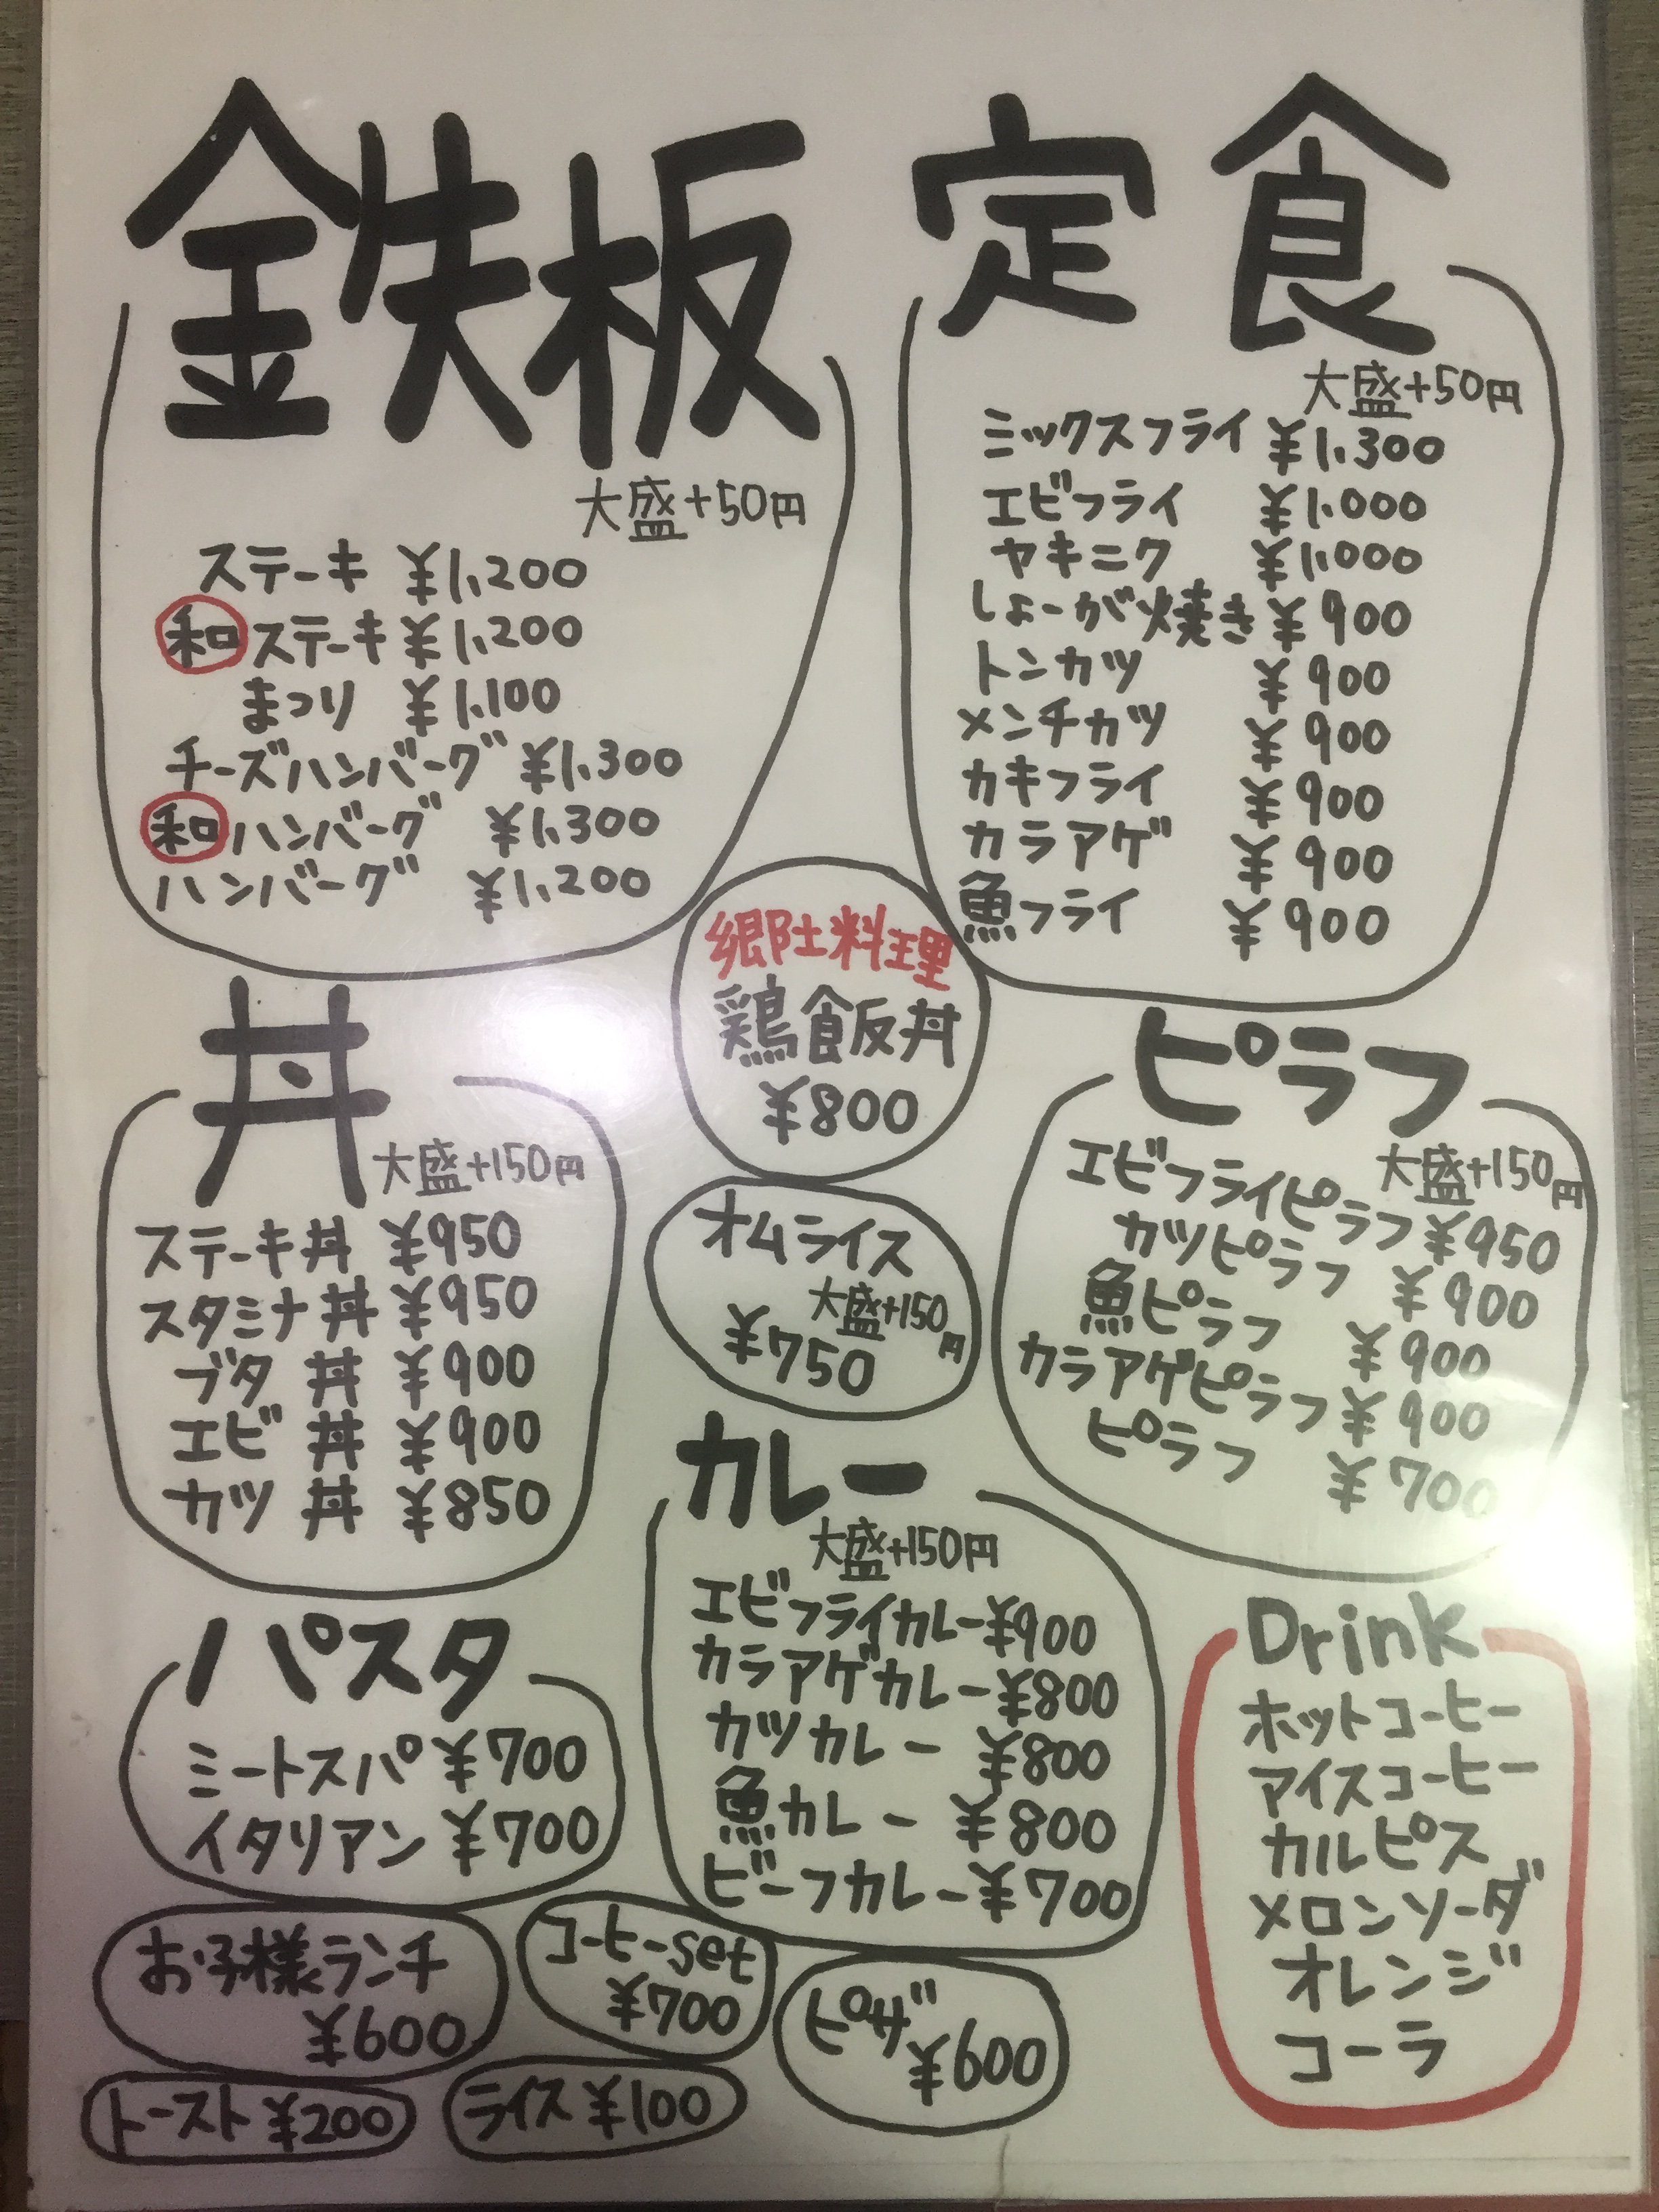 鉄板
大盛+50円
ステーキ ¥1,200
和ステーキ ¥1,200
まつり ¥1,100
チーズハンバーグ ¥1,300
和ハンバーグ ¥1,300
ハンバーグ ¥1,200
定食
大盛+50円
ミックスフライ ¥1,300
エビフライ ¥1,000
ヤキニク ¥1,000
しょーが焼き ¥900
トンカツ ¥900
メンチカツ ¥900
カキフライ ¥900
カラアゲ ¥900
魚フライ ¥900
郷土料理
鶏飯丼
¥800
丼
大盛+150円
ステーキ丼 ¥950
スタミナ丼 ¥950
ブタ丼 ¥900
エビ丼 ¥900
カツ丼 ¥850
オムライス
大盛+150円
¥750
ピラフ
大盛+150円
エビフライピラフ ¥950
カツピラフ ¥900
魚ピラフ ¥900
カラアゲピラフ ¥900
ピラフ ¥700
カレー
大盛+150円
エビフライカレー ¥900
カラアゲカレー ¥800
カツカレー ¥800
魚カレー ¥800
ビーフカレー ¥700
パスタ
ミートスパ ¥700
イタリアン ¥700
Drink
ホットコーヒー
アイスコーヒー
カルピス
メロンソーダ
オレンジ
コーラ
お子様ランチ
¥600
コーヒーset
¥700
ピザ
¥600
トースト ¥200
ライス ¥100